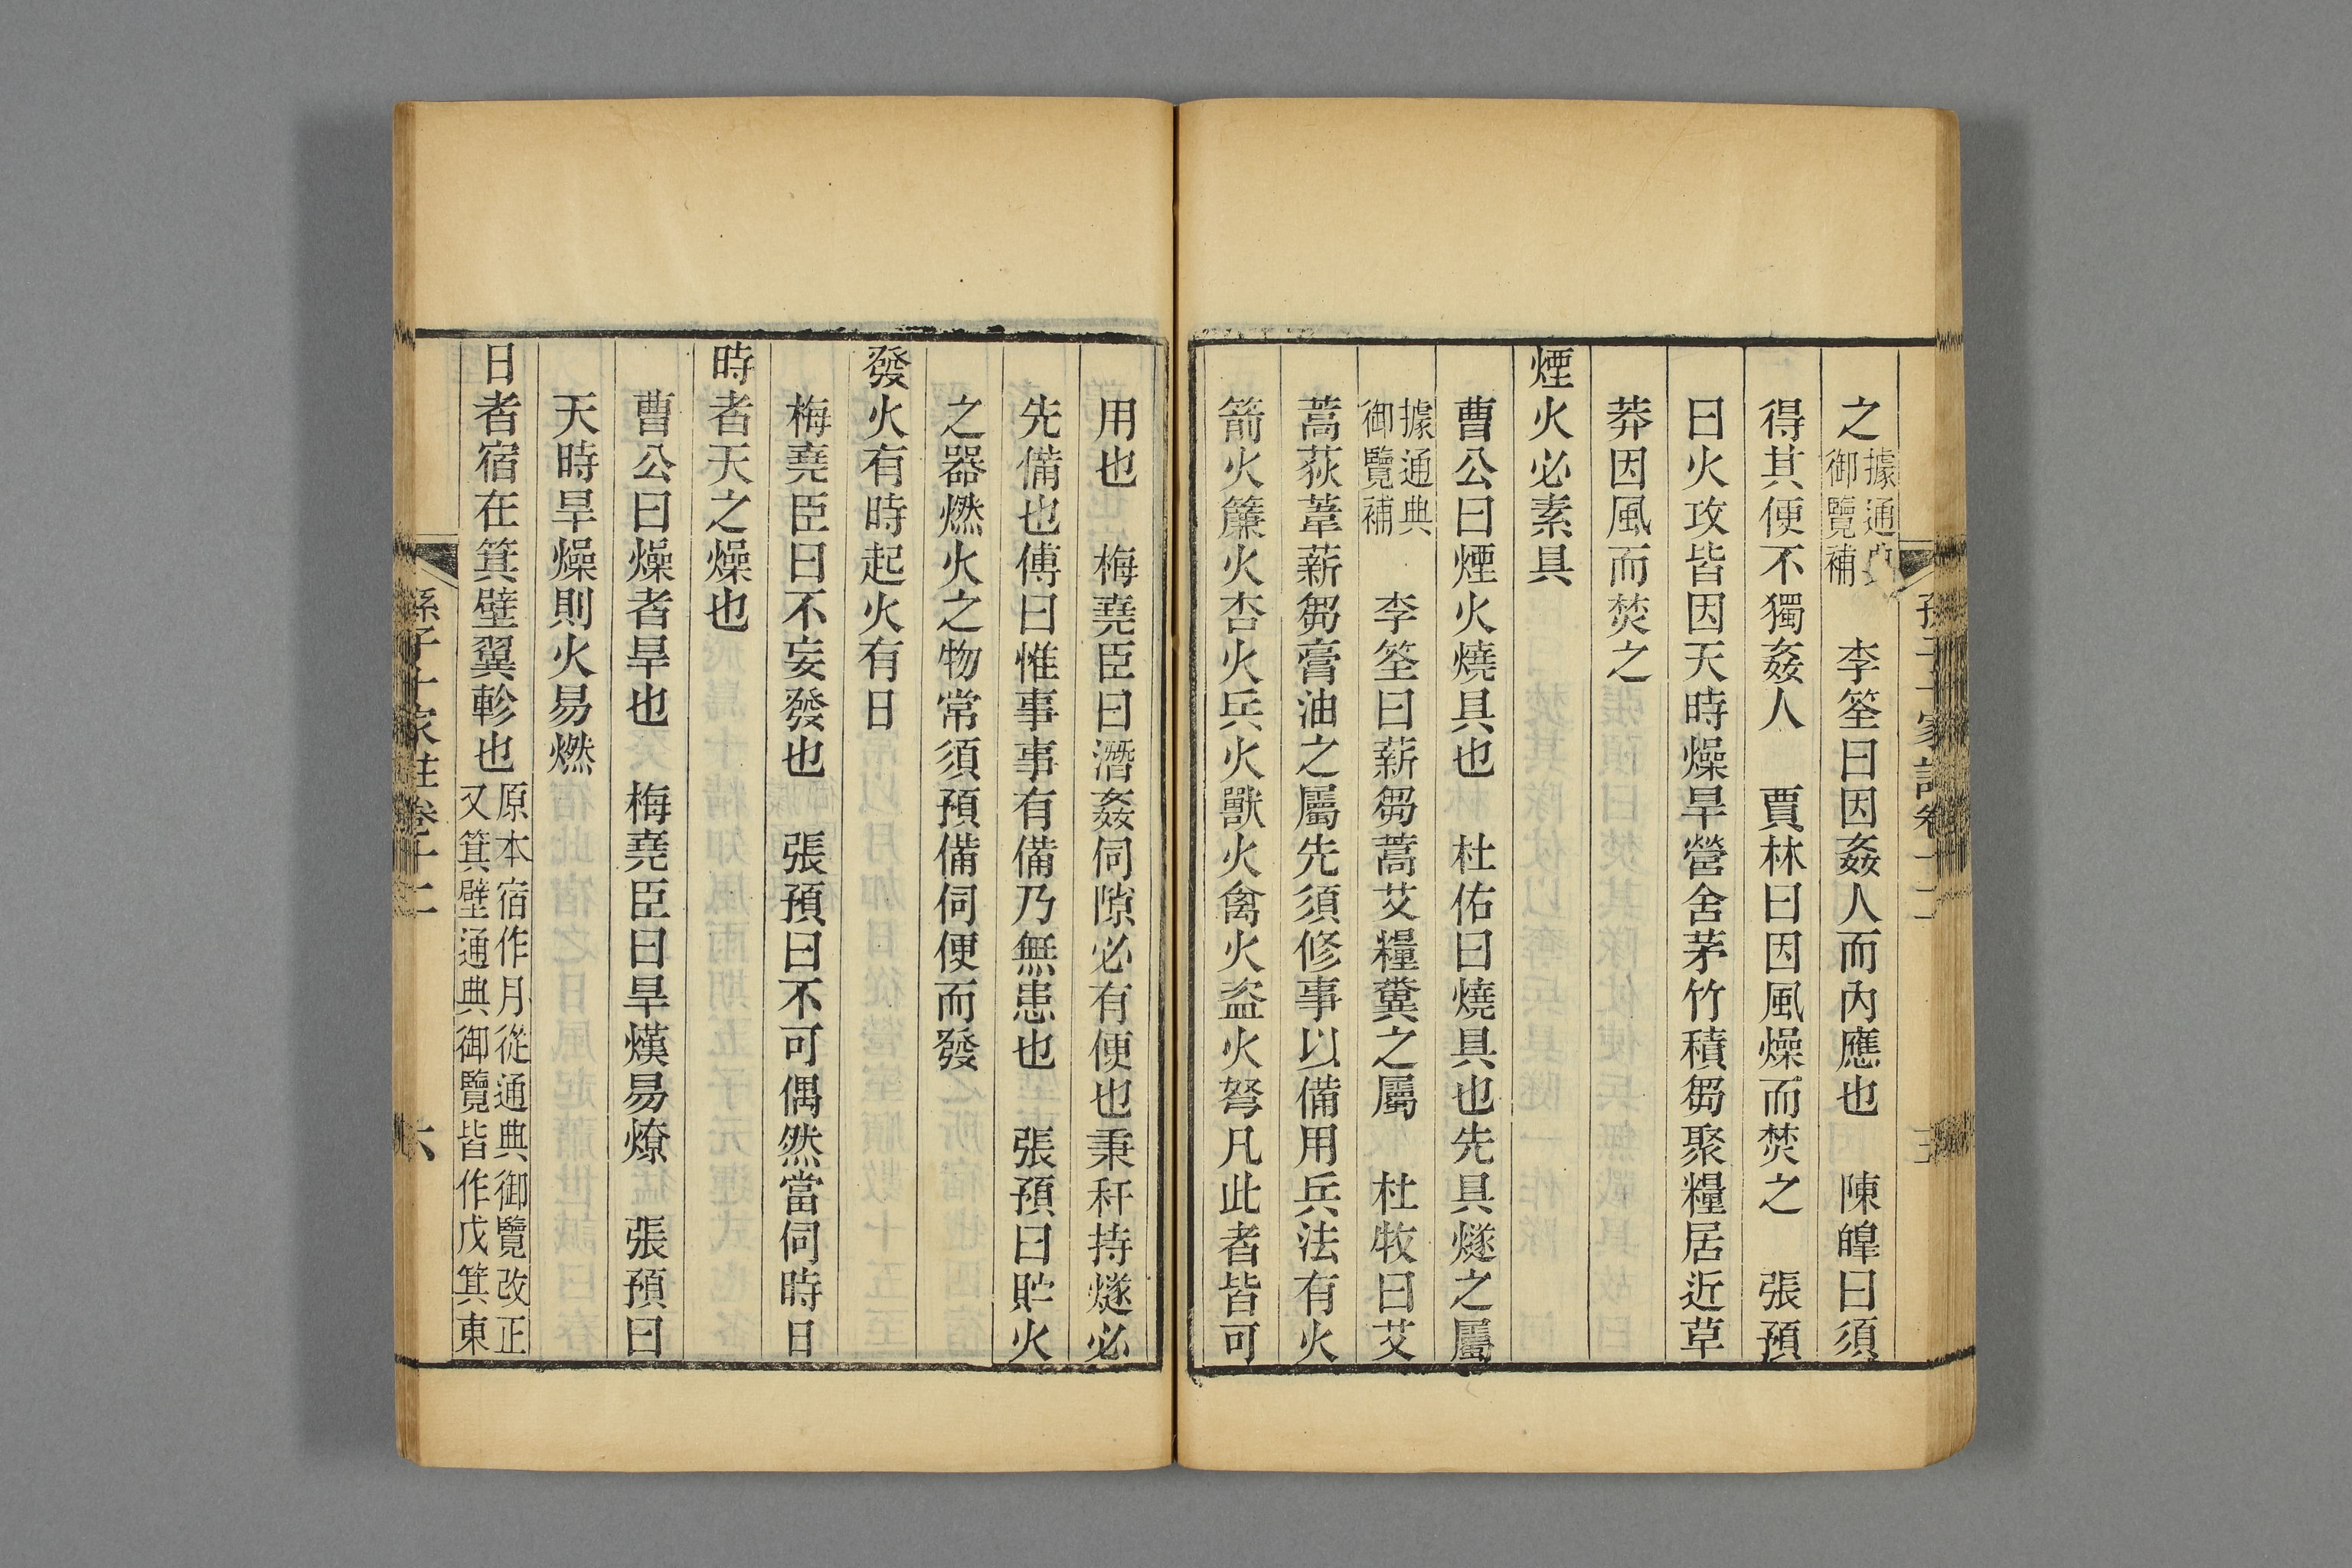 之據通典御覽補　李筌曰因姦人而內應也　陳皥曰須
得其便不獨姦人　賈林曰因風燥而焚之　張預
曰火攻皆因天時燥旱營舍茅竹積芻聚糧居近草
莽因風而焚之
煙火必素具
曹公曰煙火燒具也　杜佑曰燒具也先具燧之屬
據通典御覽補　李筌曰薪芻蒿艾糧糞之屬　杜牧曰艾
蒿荻葦薪芻膏油之屬先須修事以備用兵法有火
箭火簾火杏火兵火獸火禽火盜火弩凡此者皆可
用也　梅堯臣曰潛姦伺隙必有便也秉秆持燧必
先備也傅曰惟事事有備乃無患也　張預曰貯火
之器燃火之物常須預備伺便而發
發火有時起火有日
梅堯臣曰不妄發也　張預曰不可偶然當伺時日
時者天之燥也
曹公曰燥者旱也　梅堯臣曰旱熯易燎　張預曰
天時旱燥則火易燃
日者宿在箕壁翼軫也原本宿作月從通典御覽改正又箕壁通典御覽皆作戊箕東
孫子十家註卷十二
六